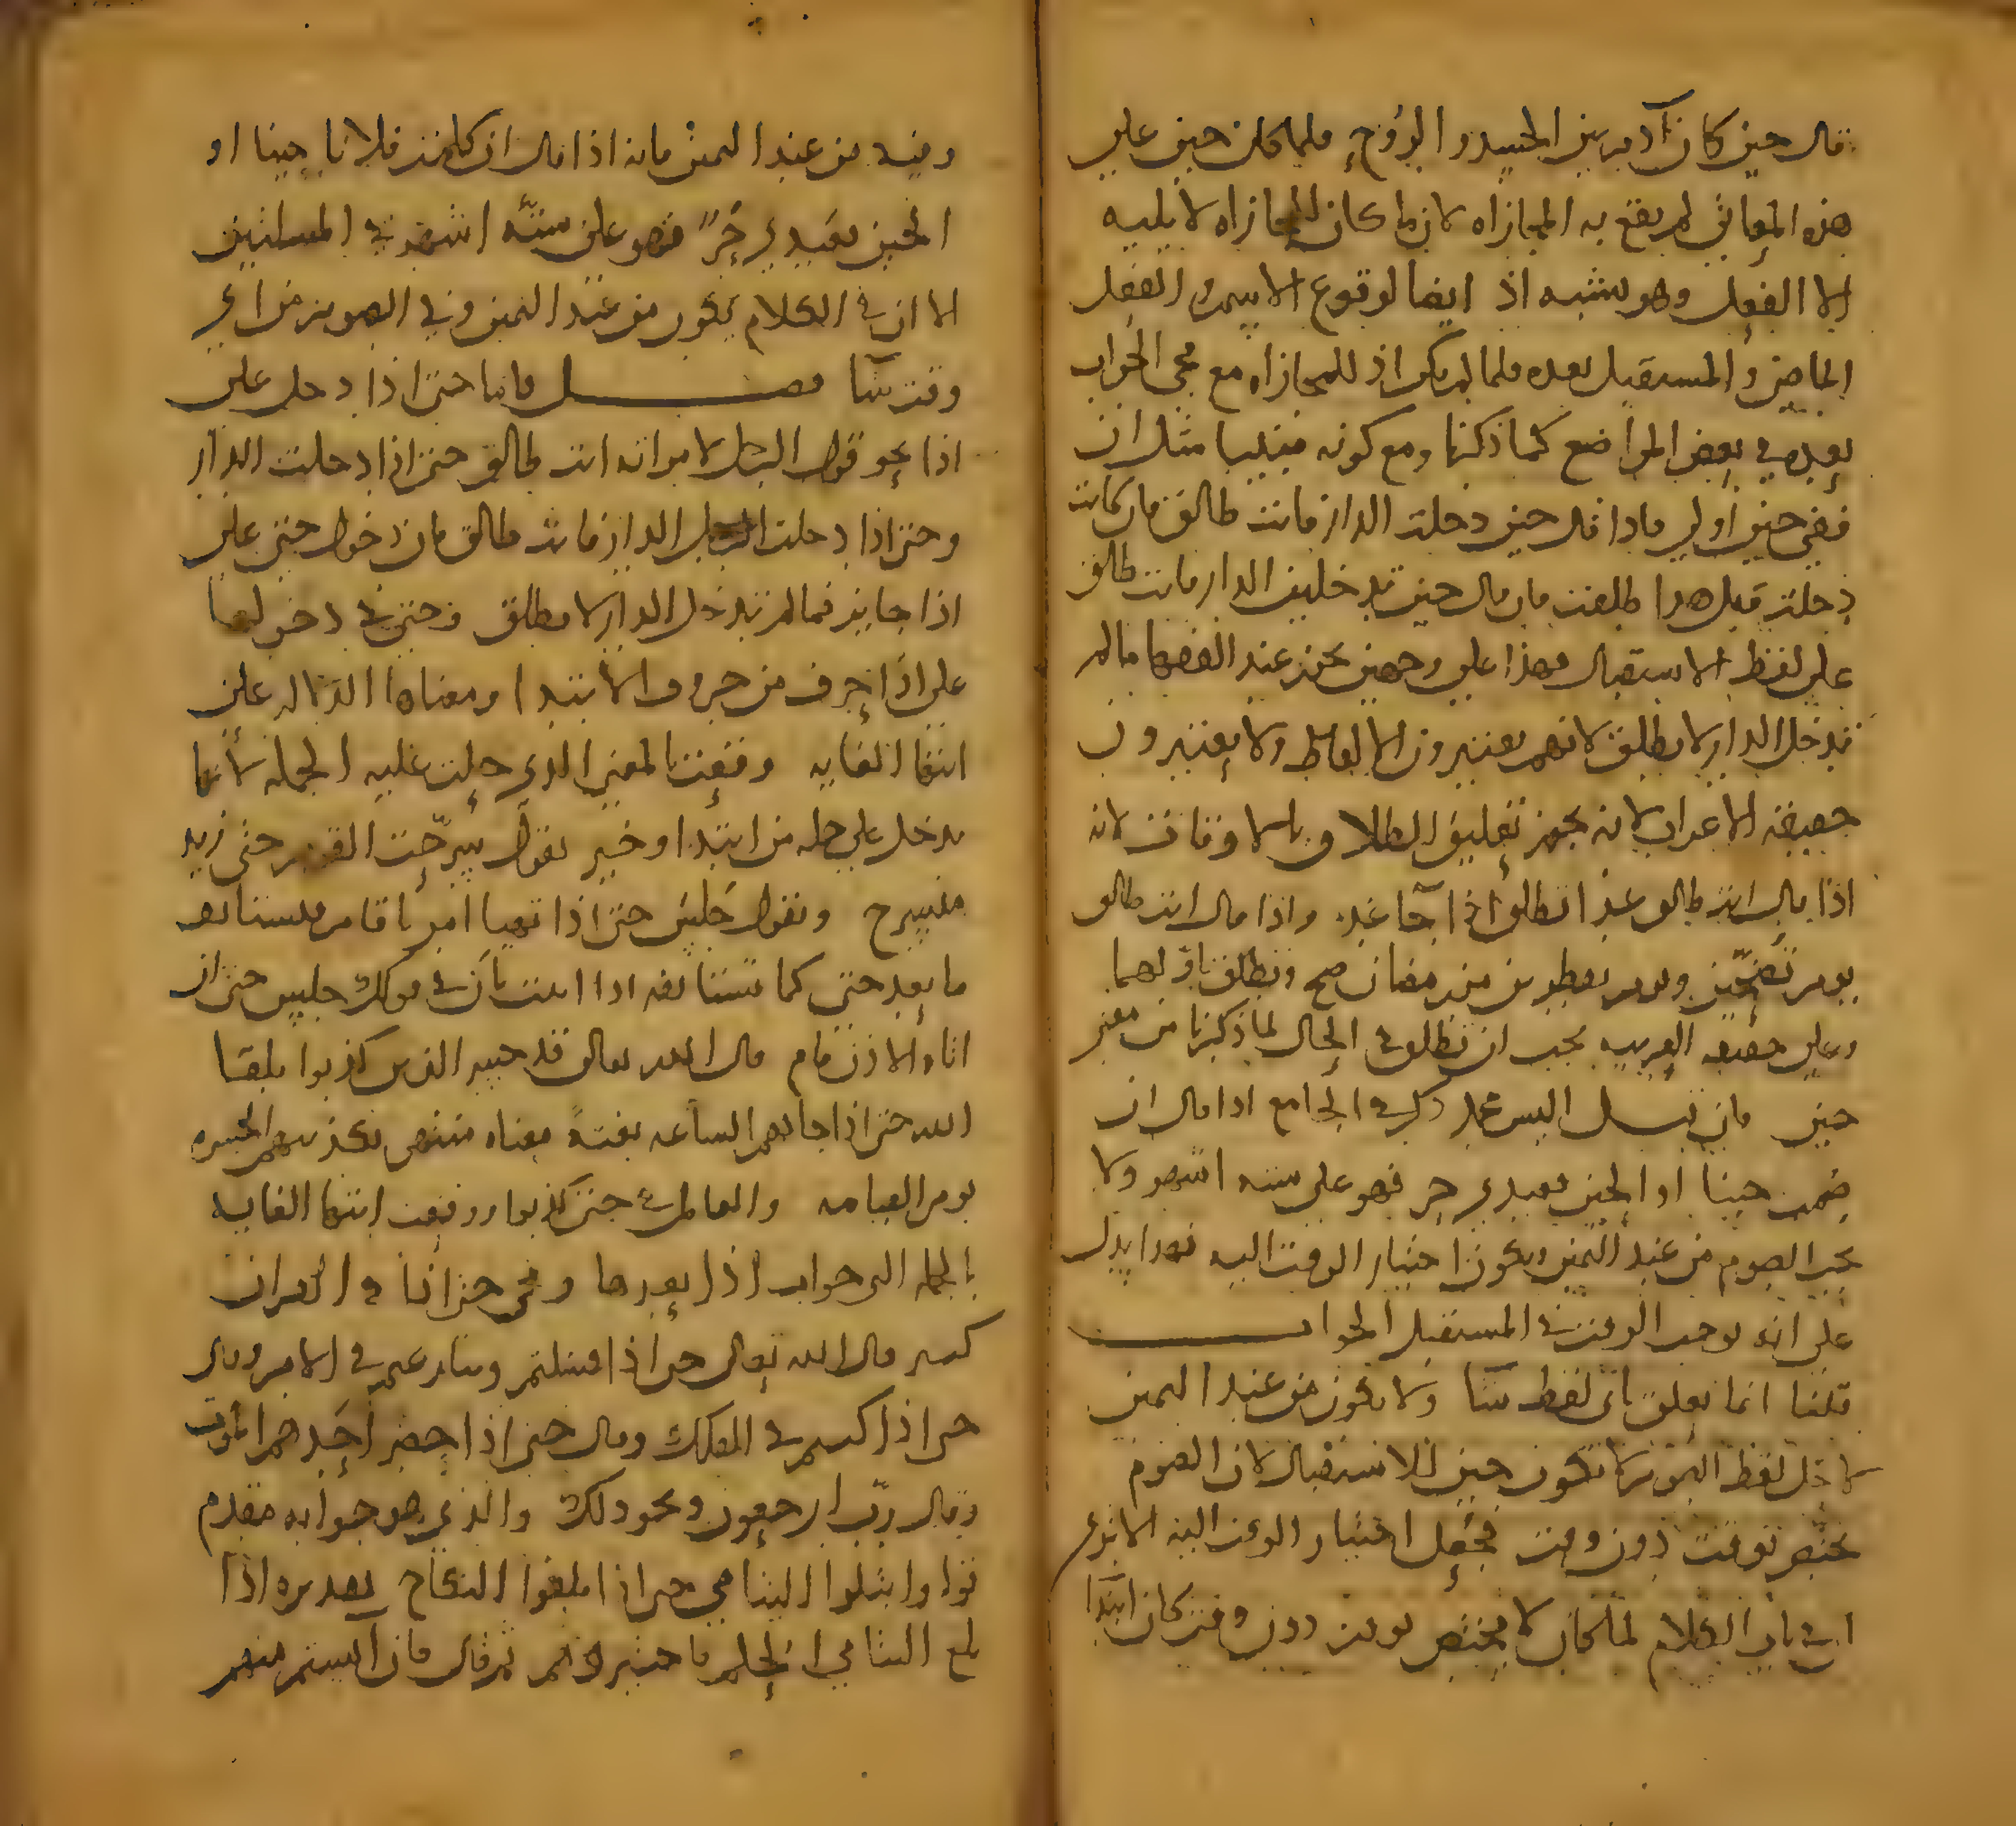 قال حين كان آدم بين الجسد والروح فلما كان حين على
هذه المعاني لم يقع به المجازاه لان ما كان للمجازاه لا يليه
الا الفعل وهو يشبه اذ ايضا لوقوع الاسم والفعل
الماضي والمستقبل بعده فلما لم يكن اذ للمجازاه مع مجي الجواب
بعده في بعض المواضع كما ذكرنا ومع كونه مثل ان
ففي حين اولى فاذا قال حين دخلت الدار فانت طالق فان كانت
دخلت قبل هذا طلقت فان قال حين تدخلين الدار فانت طالق
على لفظ الاستقبال فهذا على وجهين عند الفقها ما لم
تدخل الدار لا تطلق لانهم يعتبرون الالفاظ ولا يعتبرون
حقيقة الاعراب لانه يجوز تعليق الطلاق بالاوقات لانه
اذا قال انت طالق غدا تطلق اذا جا غد واذا قال انت طالق
يوم ويوم من رمضان صح وتطلق باولهما
وعلى حقيقه العربيه يجب ان تطلق في الحال لما ذكرنا من معنى
حين فان قيل اليس محمد ذكر في الجامع اذا قال ان
صمت حينا او الحين فعبدي حر فهو على سته اشهر ولا
يجب الصوم من عند اليمين ويكون اختيار الوقت اليه فهذا يدل
على انه يوجب الوقت في المستقبل الجواب
قلنا انما يعلق باي لفظ شا ولا يكون من عند اليمين
لاجل لفظ اليمين لا تكون حين للاستقبال لان الصوم
يختص بوقت دون وقت فجعل اختيار الوقت اليه الا ترى
ان في باب الكلام لما كان لا يختص بوقت دون وقت كان ابتدا
وقته من عند اليمين فانه اذا قال ان كلمت فلانا حينا او
الحين فعبدي حر فهو على ستة اشهر في المسلتين
الا ان في الكلام يكون من عند اليمين وفي الصوم من اي
وقت شا فصل فاما حتى اذا دخل على
اذا نحو قول الرجل لامراته انت طالق حتى اذا دخلت الدار
وحتى اذا دخلت الدار فانت طالق فان دخول حتى على
اذا جايز فما لم تدخل الدار لا تطلق وحتى في دخولها
على اذا حرف من حروف الابتدا ومعناها الدلاله على
انتها الغايه وقعت بالمعنى الذي دخلت عليه الجمله لانها
تدخل على جمله من ابتدا وخبر تقول سرحت القوم حتى زيد
مسرح وتقول جلس حتى اذا تهيا امرنا قام فتستانف
ما بعد حتى كما تستانفه اذا اتيت بان في قولك جلس حتى ان
اتاه الاذن قام قال الله تعالى قد خسر الذين كذبوا بلقا
الله حتى اذا جاتهم الساعه بغتةً معناه منتهى تكذيبهم الحسره
يوم القيامه والعامل في حتى كذبوا ووقعت انتها الغايه
بالجمله التي جواب اذا بعدها ومجي حتى اذا في القران
كثير قال الله تعالى حتى اذا فشلتم وتنازعتم في الامر وقال
حتى اذا كنتم في الفلك وقال حتى اذا حضر احدهم الموت
وقال ربّ ارجعون ونحو ذلك والذي هو جوابه مقدم
قوله وابتلوا اليتامى حتى اذا بلغوا النكاح تقديره اذا
بلغ اليتامى الحلم فاختبروهم ثم قال فان انستم منهم